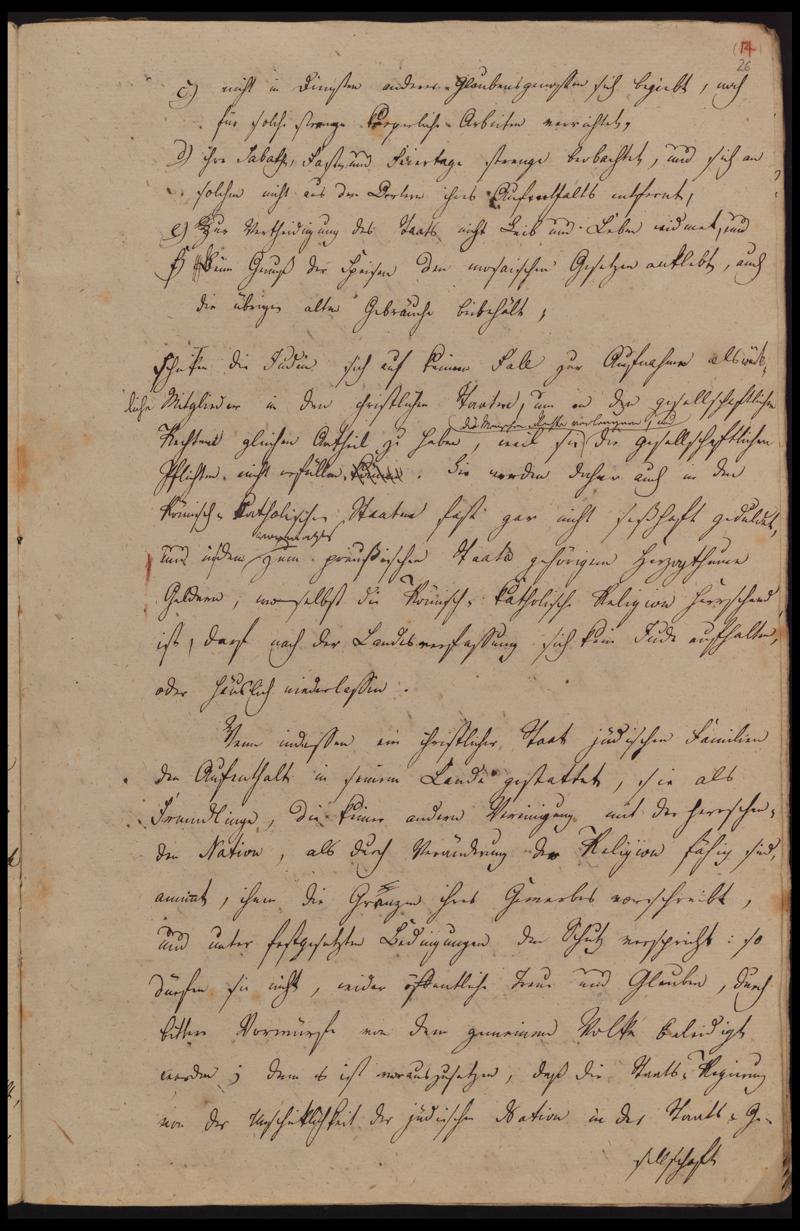 (14)
26
c.) nicht in Diensten anderer Glaubensgenossen sich begiebt, noch
für solche strenge körperliche Arbeiten verrichtet,
d) ihre Sabathe, Fast- und Feiertage strenge beobachtet, und sich an
solchen nicht aus den Oertern ihres Aufenthalts entfernt,
e) Zur Vertheidigung des Staats nicht Leib und Leben widmet, und
f) beim Genuß der Speisen den mosaischen Gesetzen anklebt, auch
die übrigen alten Gebräuche beibehält;
schicken die Juden sich auf keinen Fall zur Aufnahme als wirk-
liche Mitglieder in den christlichen Staaten, um an den gesellschaftlichen
die Menschen Rechte verlangen, und
Rechten gleichen Antheil zu haben, weil sie die gesellschaftlichen
Pflichten nicht erfüllen können. Sie werden daher auch in den
Römisch-Katholischen Staaten fast gar nicht seßhaft geduldet,
vormals
und in dem zum preußischen Staate gehörigen Herzogthume
Geldern, woselbst die Römisch-Katholische Religion herrschend
ist, darf nach der Landesverfassung sich kein Jude aufhalten,
oder häuslich niederlassen.
Wenn indessen ein christlicher Staat jüdischen Familien
den Aufenthalt in seinem Lande gestattet, sie als
Fremdlinge, die keiner andern Vereinigung mit der herrschen-
den Nation, als durch Veränderung der Religion fähig sind,
annimt, ihnen die Gränzen ihres Gewerbes vorschreibt,
und unter festgesetzten Bedingungen den Schutz verspricht: so
dürfen sie nicht, wider öffentliche Treue und Glauben, durch
bittere Vorwürfe von dem gemeinen Volke beleidigt
werden; denn es ist vorauszusetzen, daß die Staats-Regierung
von der Unschicklichkeit der jüdischen Nation in der Staats-Ge-
sellschaft